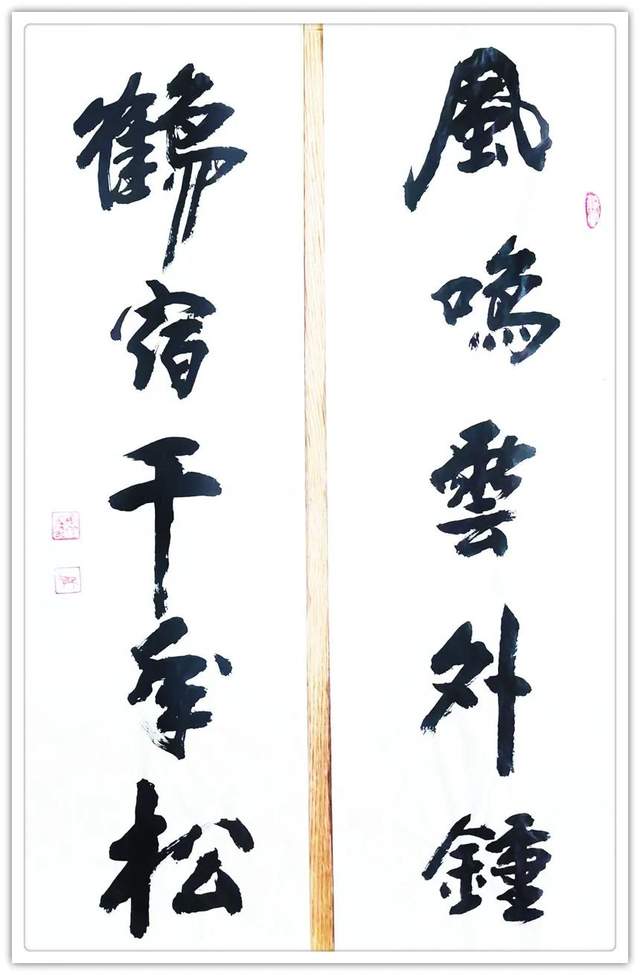 風鳴雲外鍾
鶴宿千年松